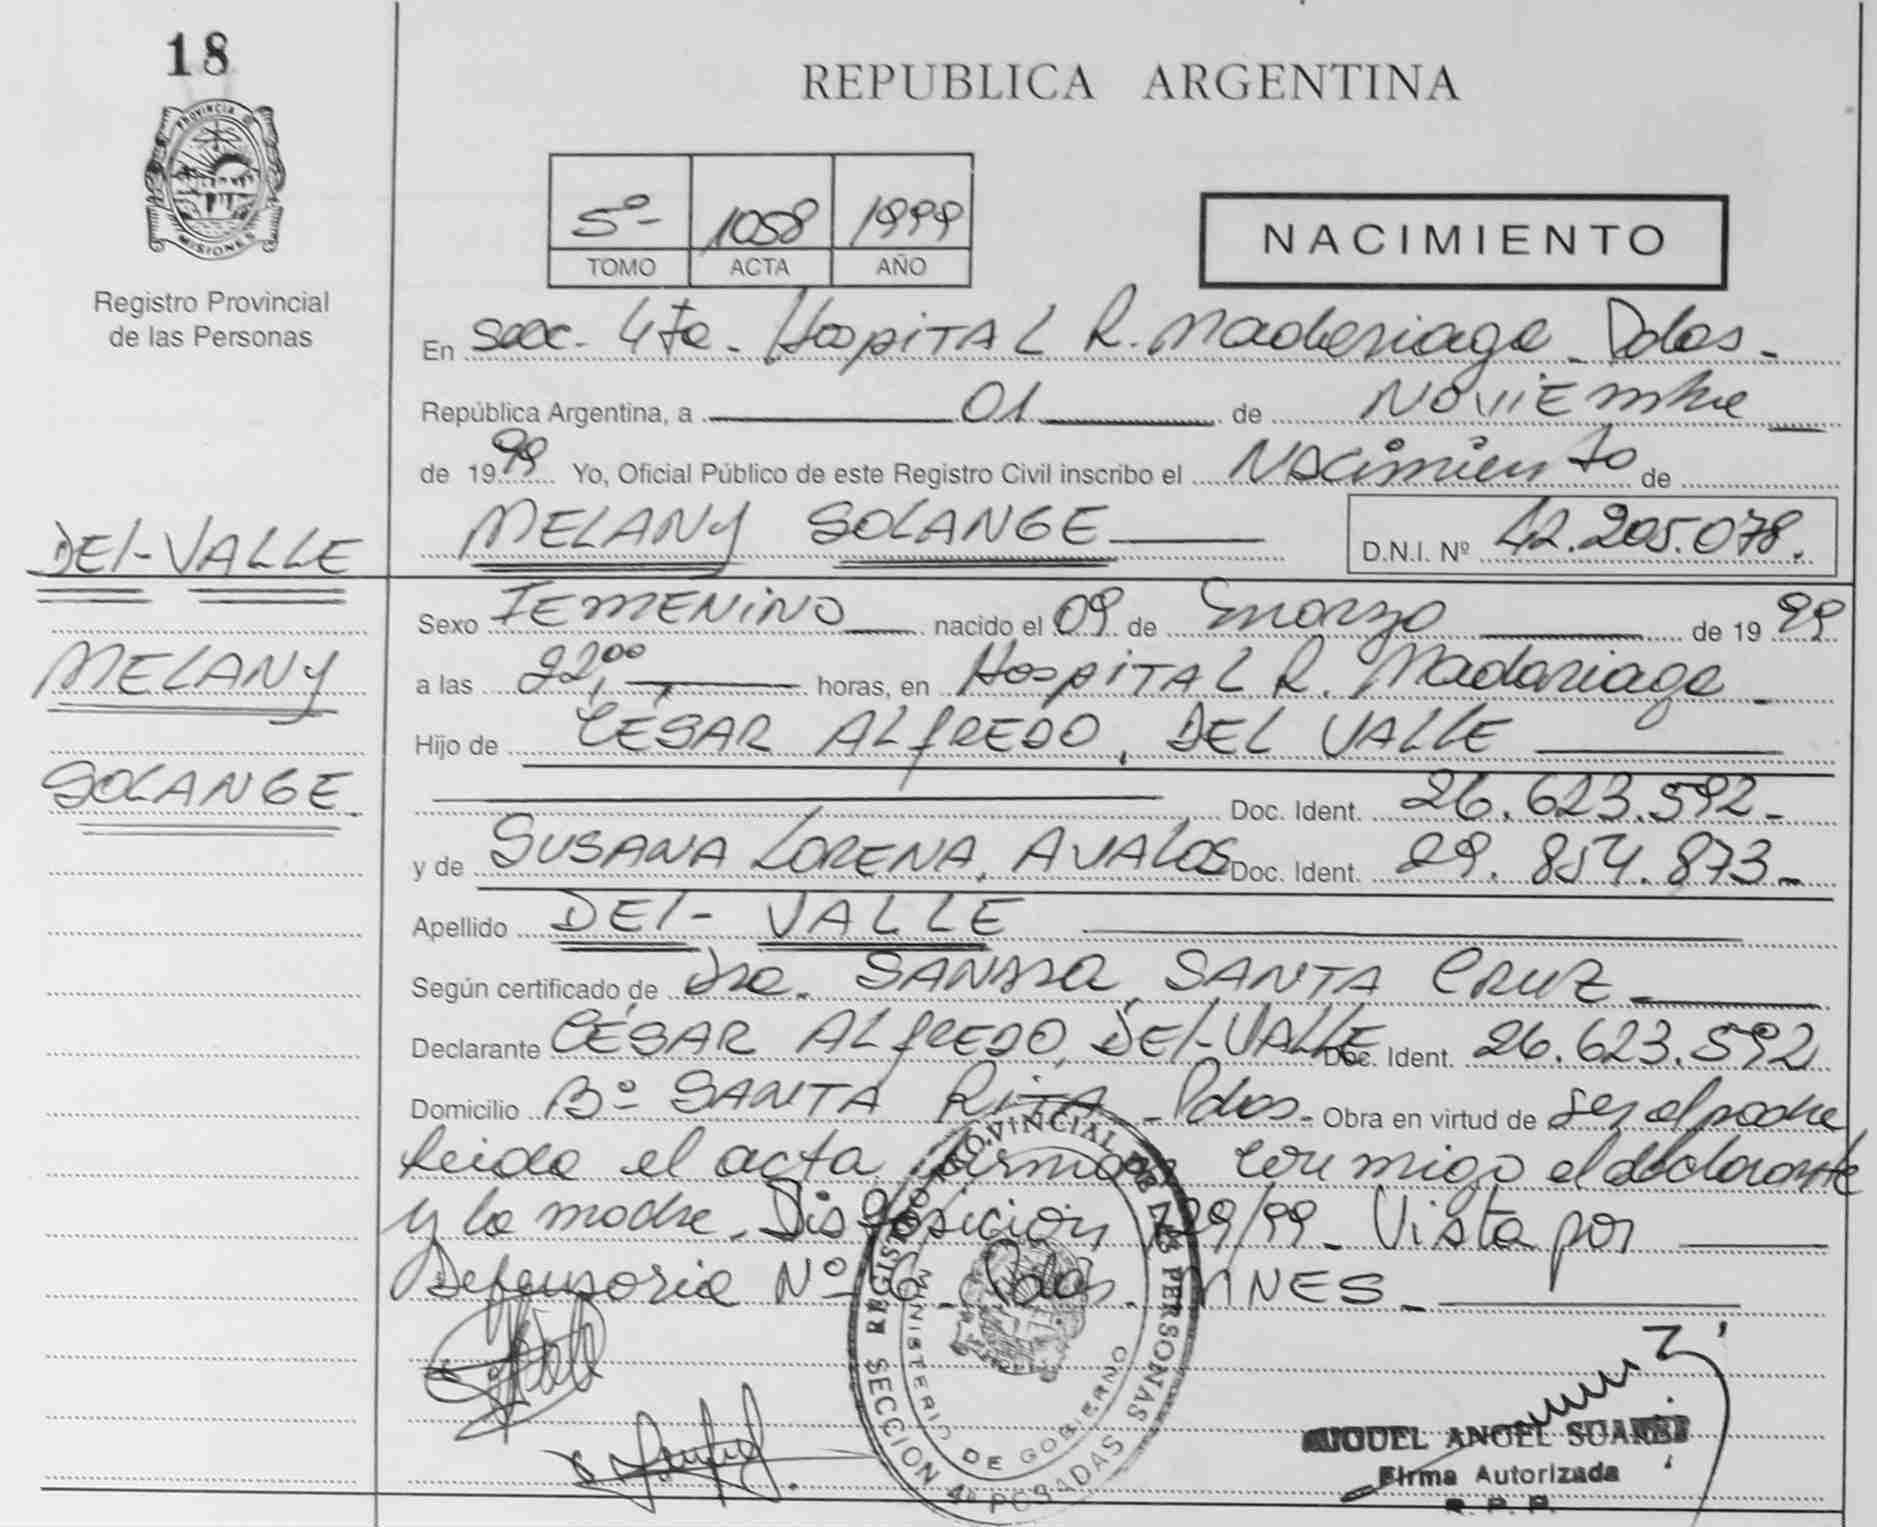 18
PROVINCIA DE
MISIONES
Registro Provincial
de las Personas
DEL-VALLE
MELANY
SOLANGE
REPUBLICA ARGENTINA
5º- 1058 1999
TOMO ACTA AÑO
NACIMIENTO
En secc. 4ta. Hospital R. Madariaga - Pdas.-
República Argentina, a 01 de Noviembre
de 1999 Yo, Oficial Público de este Registro Civil inscribo el Nacimiento de
MELANY SOLANGE D.N.I. Nº 42.205.078.
Sexo FEMENINO nacido el 09 de Marzo de 1999
a las 22,00 horas, en Hospital R. Madariaga -
Hijo de CÉSAR ALFREDO, DEL VALLE
Doc. Ident. 26.623.592-
y de SUSANA LORENA, AVALOS Doc. Ident. 29.854.873-
Apellido DEL- VALLE
Según certificado de Dra. SANDRA SANTA CRUZ -
Declarante CÉSAR ALFREDO, DEL-VALLE Doc. Ident. 26.623.592
Domicilio Bº SANTA RITA - Pdas. Obra en virtud de ser el padre
leida el acta firman conmigo el declarante
y la madre. Disposicion 729/99 - Vista por
Defensoria Nº 6 - Pdas. MNES -
REGISTRO PROVINCIAL DE LAS PERSONAS
MINISTERIO DE GOBIERNO
SECCION 4º POSADAS
MIGUEL ANGEL SUAREZ
Firma Autorizada
R. P. P.